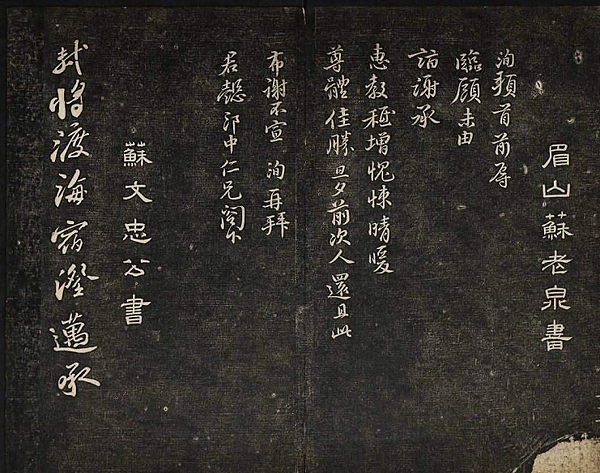 眉山蘇老泉書
洵頓首前辱
臨顧未由
詣謝承
惠教秖增愧悚晴暖
尊體佳勝旦夕前次人還且此
布謝不宣 洵再拜
君懿郎中仁兄閤下
蘇文忠公書
軾將渡海宿澄邁承